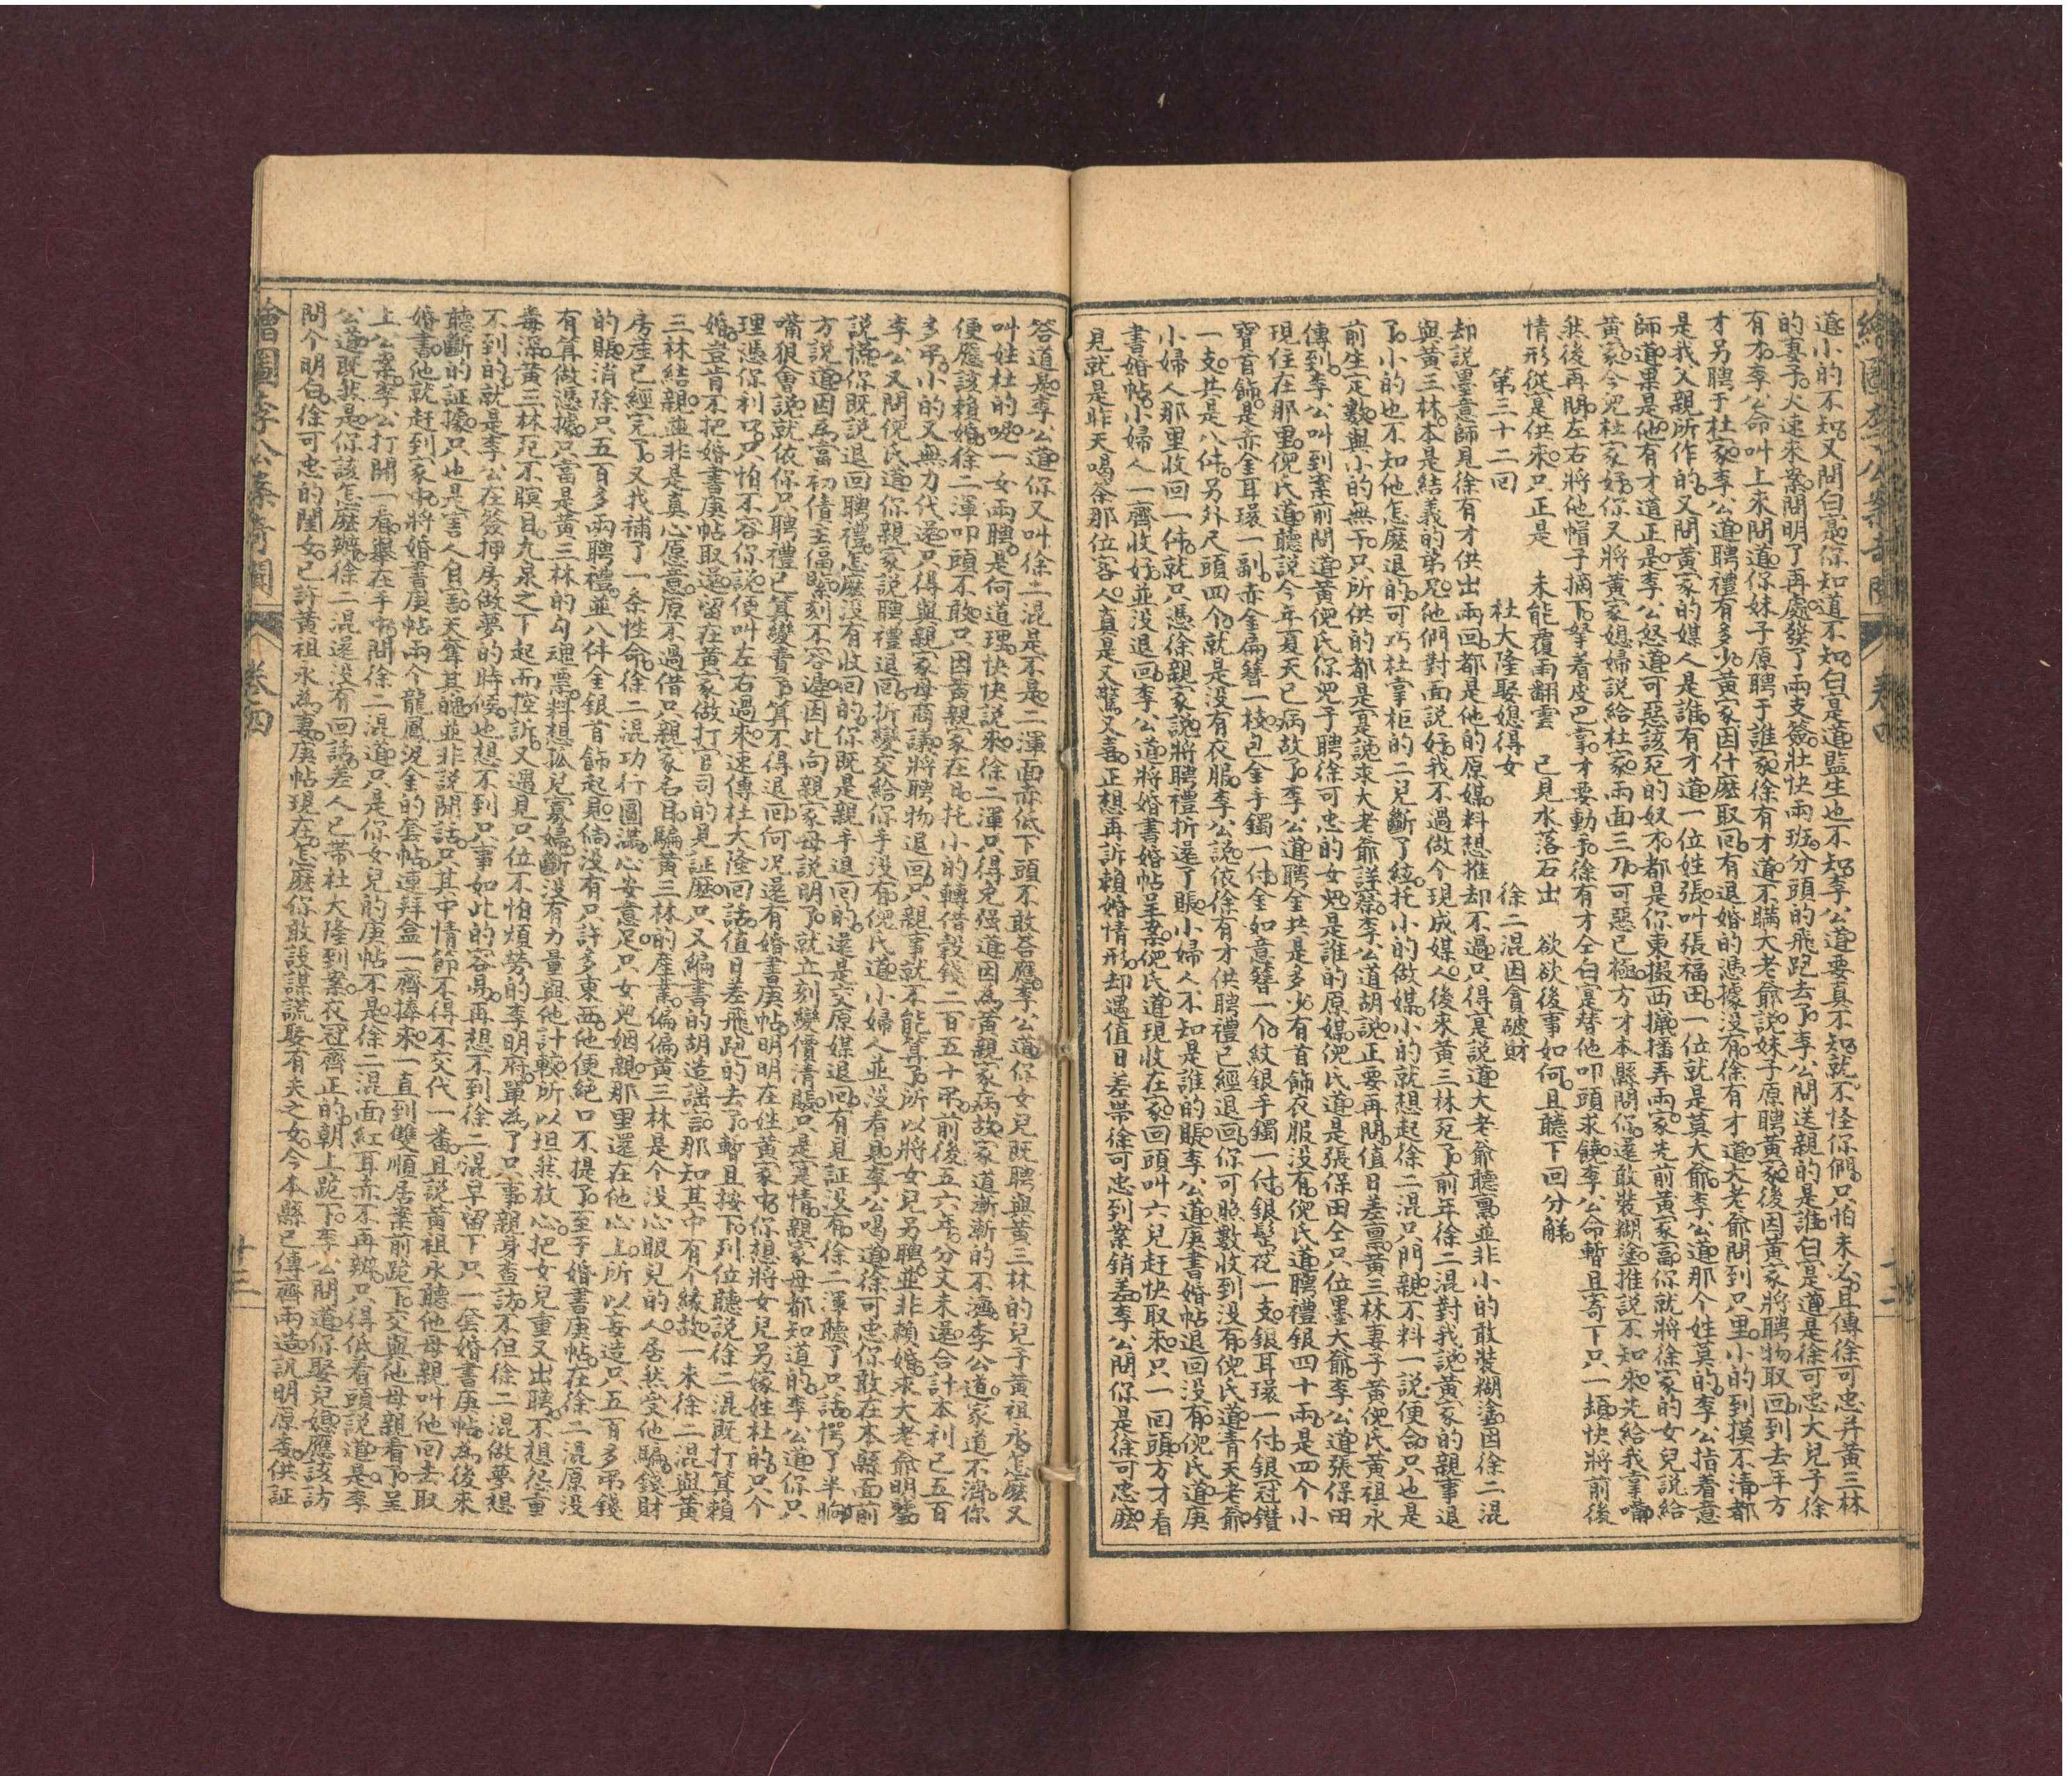 繪圖李公案奇聞　卷四
道小的不知又問白是你知道不知白是道監生也不知李公道要真不知就不怪你們只怕未必且傳徐可忠并黃三林
的妻子火速來案問明了再處發了兩支簽壯快兩班分頭的飛跑去了李公問送親的是誰白是道是徐可忠大兒子徐
有才李公命叫上來問道你妹子原聘于誰家徐有才道不瞞大老爺說妹子原聘黃家後因黃家將聘物取回到去年方
才另聘于杜家李公道聘禮有多少黃家因什麼取回有退婚的憑據沒有徐有才道大老爺問到只里小的到摸不清都
是我父親所作的又問黃家的媒人是誰有才道一位姓張叫張福田一位就是莫大爺李公道那个姓莫的李公指着意
師道果是他有才道正是李公怒道可惡該死的奴才都是你東掇西攛播弄兩家先前黃家富你就將徐家的女兒說給
黃家今見杜家好你又將黃家媳婦說給杜家兩面三刀可惡已極方才本縣問你還敢裝糊塗推說不知來先給我掌嘴
然後再問左右將他帽子摘下拏着皮巴掌才要動手徐有才仝白寔替他叩頭求饒李公命暫且寄下只一頓快將前後
情形從是供來只正是　未能覆雨翻雲　已見水落石出　欲欲後事如何且聽下回分解
第三十二回　杜大隆娶媳得女　徐二混因貪破財
却說墨意師見徐有才供出兩回都是他的原媒料想推却不過只得寔說道大老爺聽稟並非小的敢裝糊塗因徐二混
與黃三林本是結義的弟兄他們對面說好我不過做今現成媒人後來黃三林死了前年徐二混對我說黃家的親事退
了小的也不知他怎麼退的可巧杜掌柜的二兒斷了絃托小的做媒小的就想起徐二混只門親不料一說便命只也是
前生定數與小的無干只所供的都是寔說求大老爺詳察李公道胡說正要再問值日差稟黃三林妻子黃倪氏黃祖永
傳到李公叫到案前問道黃倪氏你兒子聘徐可忠的女兒是誰的原媒倪氏道是張保田仝只位墨大爺李公道張保田
現住在那里倪氏道聽說今年夏天已病故了李公道聘金共是多少有首飾衣服沒有倪氏道聘禮銀四十兩是四个小
寶首飾是赤金耳環一副赤金扁簪一枝包金手鐲一付金如意簪一个紋銀手鐲一付銀髢花一支銀耳環一付銀冠鑽
一支共是八件另外尺頭四个就是沒有衣服李公說依徐有才供聘禮已經退回你可照數收到沒有倪氏道青天老爺
小婦人那里收回一件就只憑徐親家說將聘禮折還了賬小婦人不知是誰的賬李公道庚書婚帖退回沒有倪氏道庚
書婚帖小婦人一齊收好並沒退回李公道將婚書婚帖呈案倪氏道現收在家回頭叫六兒赶快取來只一回頭方才看
見就是昨天喝茶那位客人真是又驚又喜正想再訴賴婚情形却遇值日差帶徐可忠到案銷差李公問你是徐可忠麼
答道是李公道你又叫徐二混是不是二渾面赤低下頭不敢答應李公道你女兒既聘與黃三林的兒子黃祖永怎麼又
叫姓杜的娶一女兩聘是何道理快快說來徐二渾只得免强道因為黃親家病故家道漸漸的不濟李公道家道不濟你
便應該賴婚徐二渾叩頭不敢只因黃親家在日托小的轉借穀錢二百五十吊前後五六年分文未還合計本利已五百
多吊小的又無力代還只得與親家母商議將聘物退回只親事就不能算了所以將女兒另聘並非賴婚求大老爺明鑒
李公又問倪氏道你親家說聘禮退回折變交給你手沒有倪氏道小婦人並沒看見李公喝道徐可忠你敢在本縣面前
說謊你既說退回聘禮怎麼沒有收回的你既是親手退回的還是交原媒退回有見証沒有徐二渾聽了只話愕了半晌
方說道因為當初債主逼緊刻不容遲因此向親家母說明了就立刻變價清賬只是寔情親家母都知道的李公道你只
嘴狠會說就依你只聘禮已算變賣了算不得退回何况還有婚書庚帖明明在姓黃家中你想將女兒另嫁姓杜的只个
理憑你利口只怕不容你說便叫左右過來速傳杜大隆回話值日差飛跑的去了暫且按下列位聽說徐二混既打算賴
婚豈肯不把婚書庚帖取還留在黃家做打官司的見証麼只又編書的胡造謠言那知其中有个緣故一來徐二混與黃
三林結親並非是真心愿意原不過借只親家名目騙黃三林的產業偏偏黃三林是个沒心眼兒的人居然受他騙錢財
房產已經完了又找補了一条性命徐二混功行圓滿心安意足只女兒姻親那里還在他心上所以妄造只五百多吊錢
的賬消除只五百多兩聘禮並八件金銀首飾起見倘沒有只許多東西他便絕口不提了至于婚書庚帖在徐二混原沒
有算做憑據只當是黃三林的勾魂票料想孤兒寡婦斷没有力量與他計較所以坦然放心把女兒重又出聘不想怨重
毒深黃三林死不瞑目九泉之下起而控訴又遇見只位不怕煩勞的李明府單為了只事親身查訪不但徐二混做夢想
不到的就是李公在簽押房做夢的時候也想不到只事如此的容易再想不到徐二混早留下只一套婚書庚帖為後來
聽斷的証據只也是害人自害天奪其魄並非說閒話只其中情節不得不交代一番且說黃祖永聽他母親叫他回去取
婚書他就赶到家中將婚書庚帖兩个龍鳳泥金的套帖連拜盒一齊捧來一直到雙順居案前跪下交與他母親看了呈
上公案李公打開一看舉在手中問徐二混道只是你女兒的庚帖不是徐二混面紅耳赤不再辨只得低着頭說道是李
公道既然是你該怎麼辨徐二混還没有回話差人已帶杜大隆到案衣冠齊正的朝上跪下李公問道你娶兒媳應該訪
問个明白徐可忠的閨女已許黃祖永為妻庚帖現在怎麼你敢設謀謊娶有夫之女今本縣已傳齊兩造訊明原委供証
繪圖李公案奇聞　卷四　十三